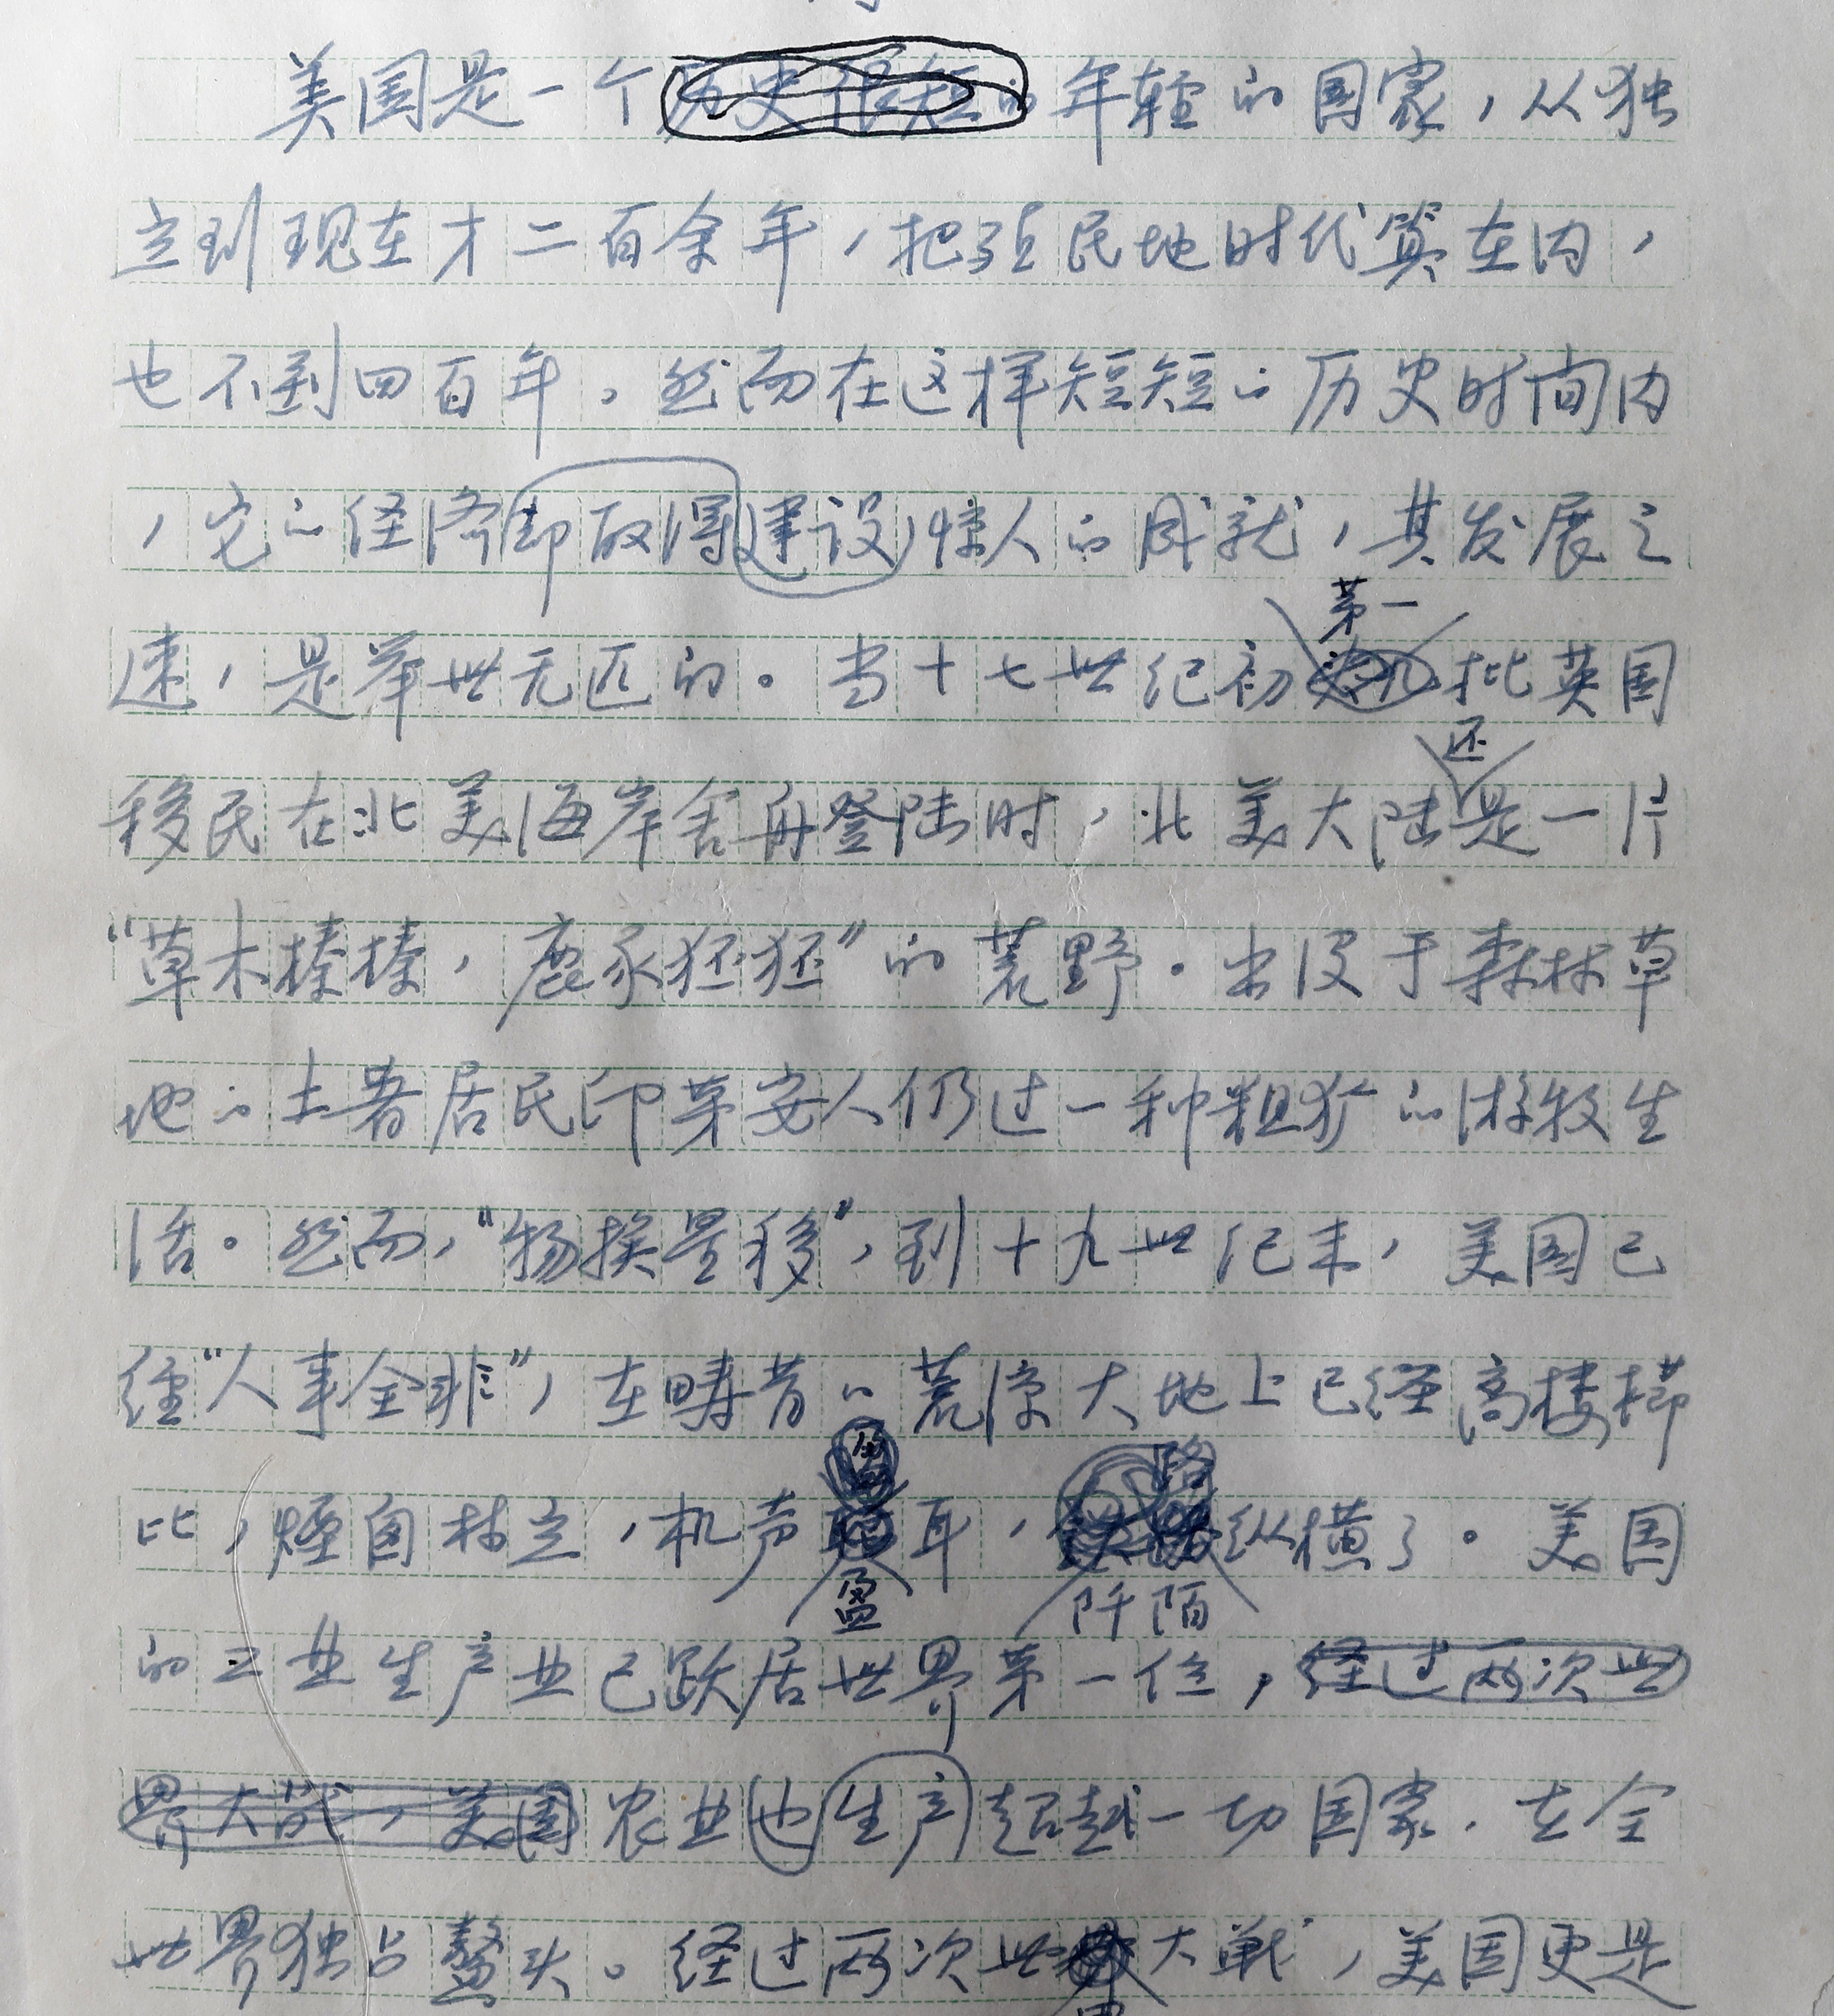 美国是一个年轻的国家，从独
立到现在才二百余年，把殖民地时代算在内，
也不到四百年。然而在这样短短的历史时间内
，它的经济建设却取得惊人的成就，其发展之
速，是举世无匹的。当十七世纪初第一批英国
移民在北美海岸舍舟登陆时，北美大陆还是一片
“草木榛榛，鹿豕狉狉”的荒野。出没于森林草
地的土著居民印第安人仍过一种粗犷的游牧生
活。然而，“物换星移”，到十九世纪末，美国已
经“人事全非”，在畴昔的荒凉大地上已经高楼栉
比，烟囱林立，机声盈耳，阡陌纵横了。美国
的工业生产业已跃居世界第一位，
农业生产也超越一切国家，在全
世界独占鳌头。经过两次世界大战，美国更是